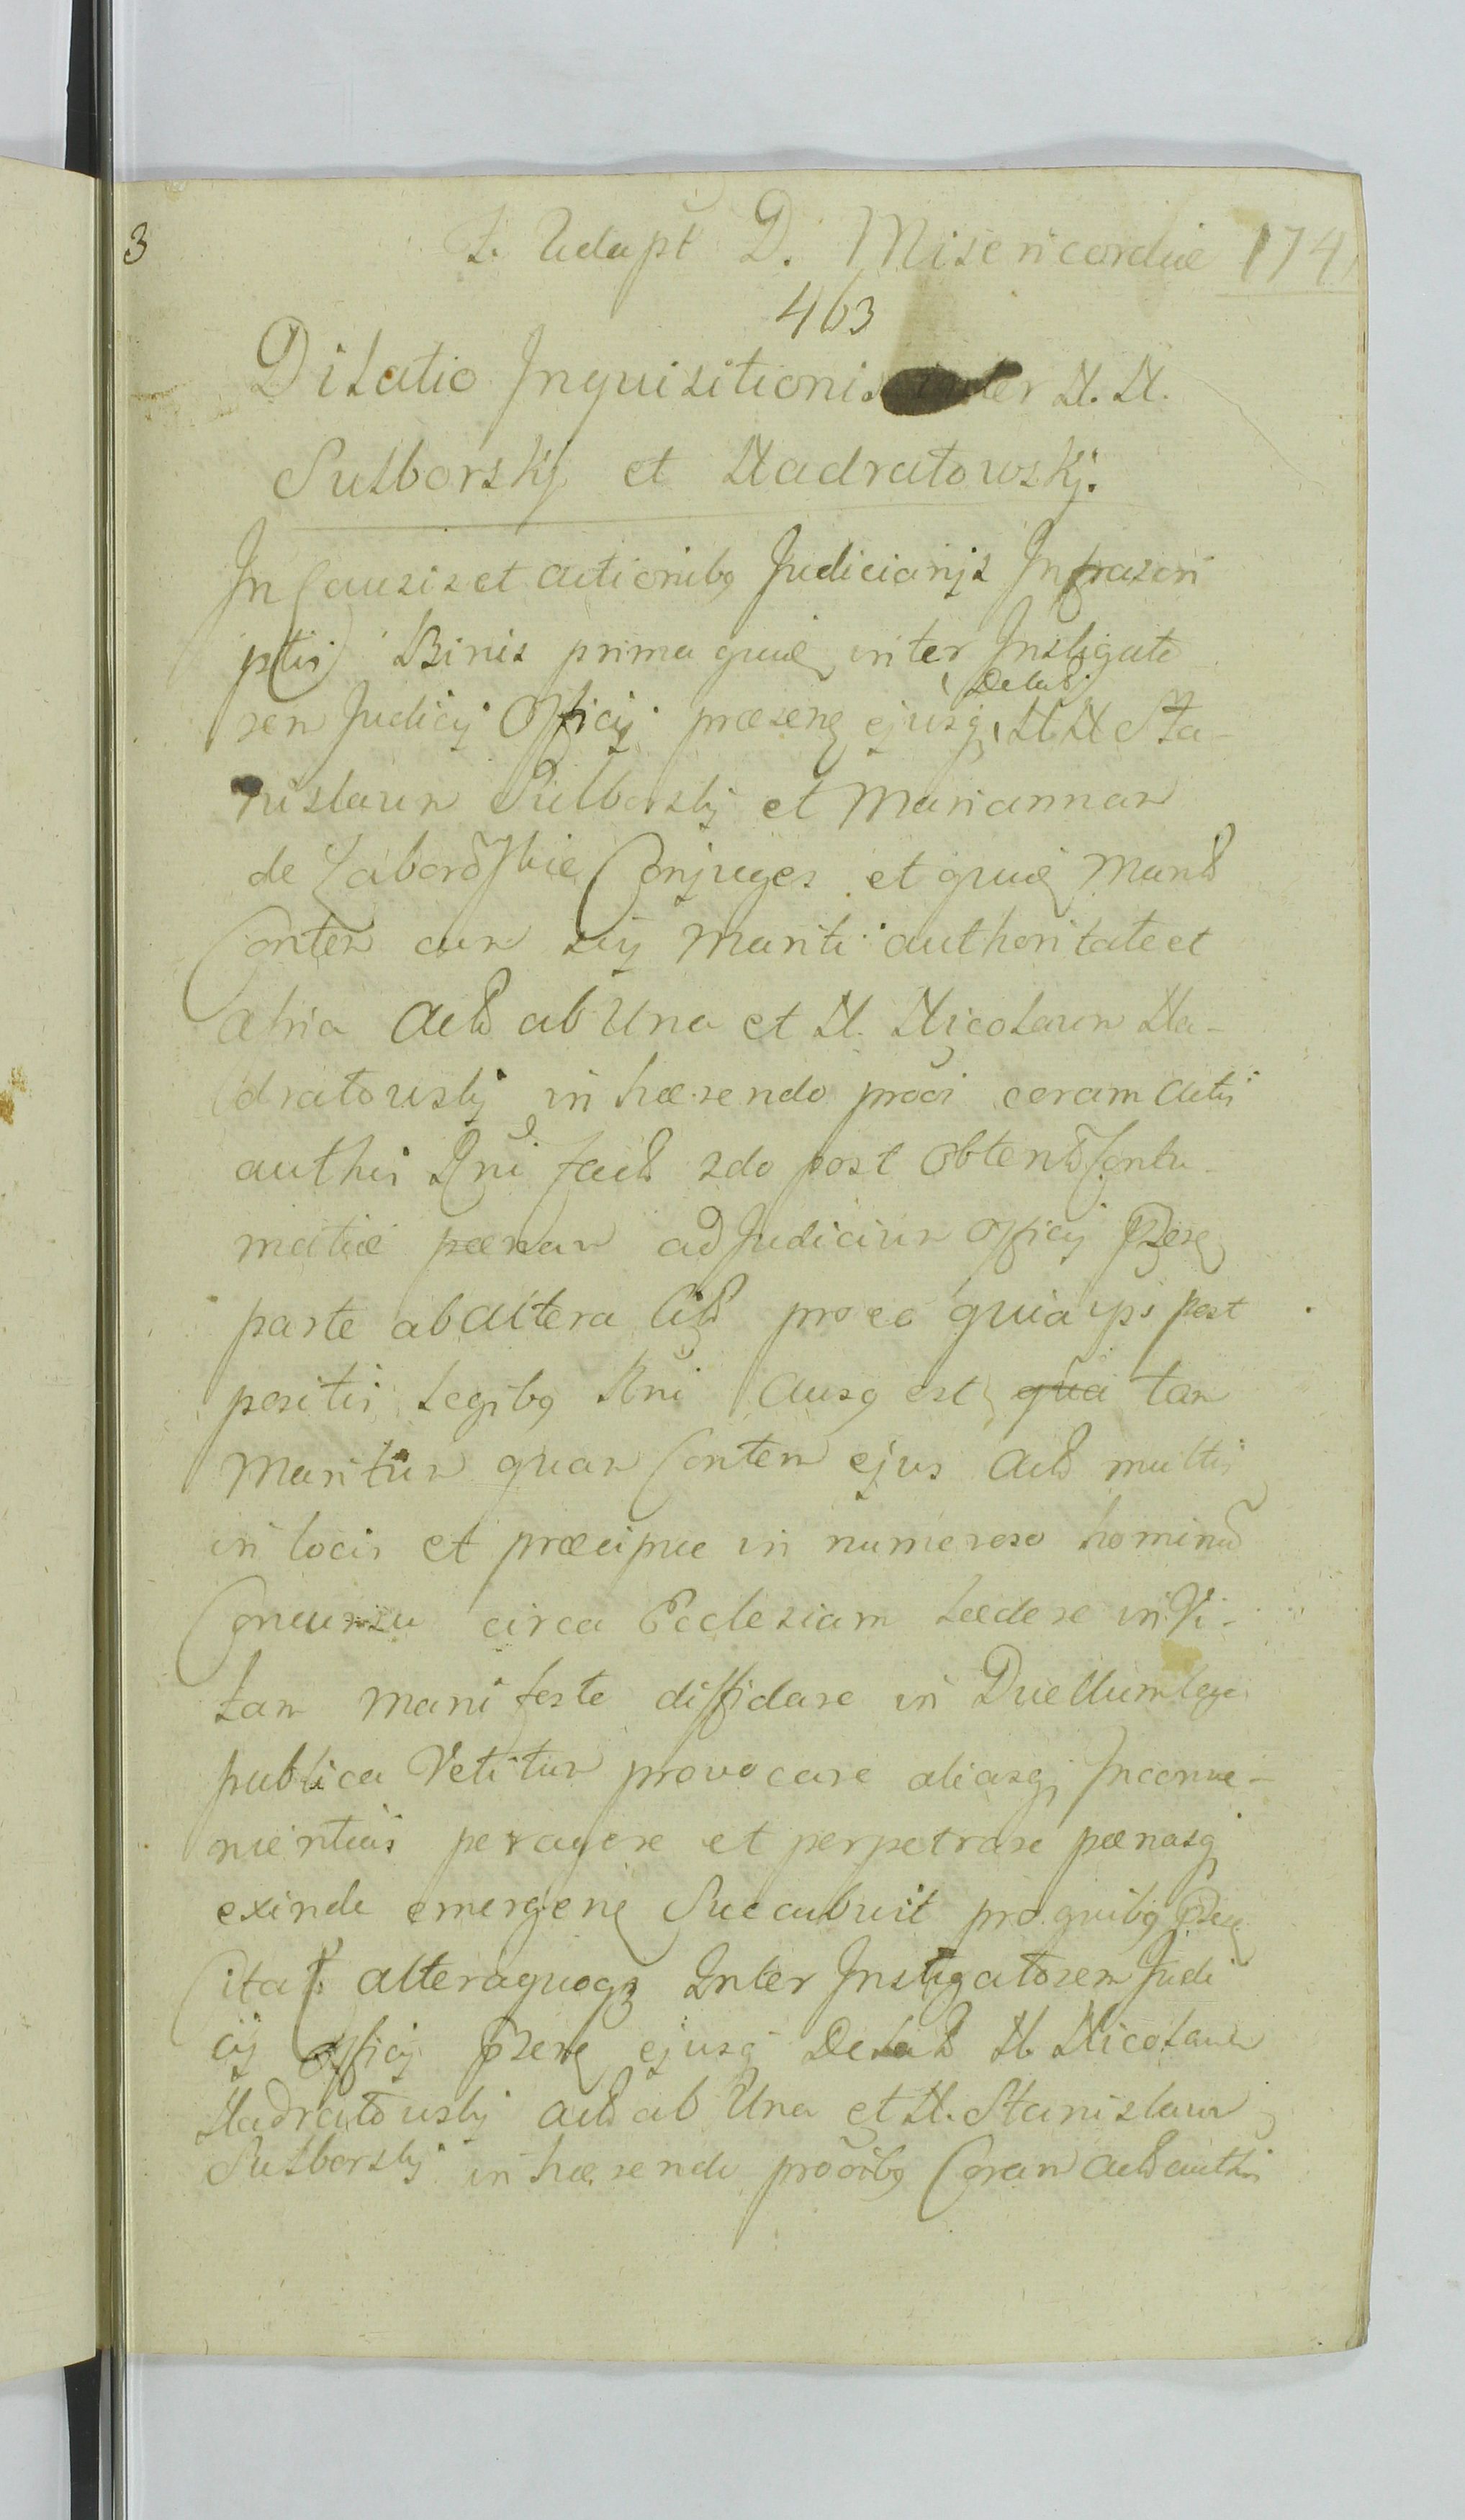 3
D. Misericordiæ 174
463
Dilatio Inquisitionis inter N. N.
Sulborskj et Nadratowskj.
In Causis et actionibq Judiciarijs Infrascri
ptis Binis prima quid inter Instigato
Delat
rem Judicij Officij præsenq ejusq N N Sta-
nislaum Sulborskj et Mariannam
de Zaborõskie Conjuges et quid Mand
Conten cum sui mariti authoritate et
atria Act ab Una et N. Nicolaum Na-
dratowskj inhærendo prõri coram actis
authis Rni fact 2do post Obtent Contu-
matiæ pænam ad Judicium officij Præsq
parte ab altera Cit pro eo quia ips post
positis Legibq Rni Ausq est qua tam
Maritum quam Conten ejus Act multis
in locis et præcipue in numeroso hominũ
Concursu circa Ecclesiam lædere in Vi-
tam manifeste diffidare in Duellum lege
publica Vetitum provocare aliasq Inconve-
nientias peragere et perpetrare pænasq
exinde emergenq Succubuit pro quibq Præsq
Citat alteraquoq Inter Instigatorem Judi
cij officij Præsq ejusq Delat N. Nicolaum
Nadratowskj act ab Una et N. Stanislaum
Sulborskj inhærendo prõribq Coram act authis